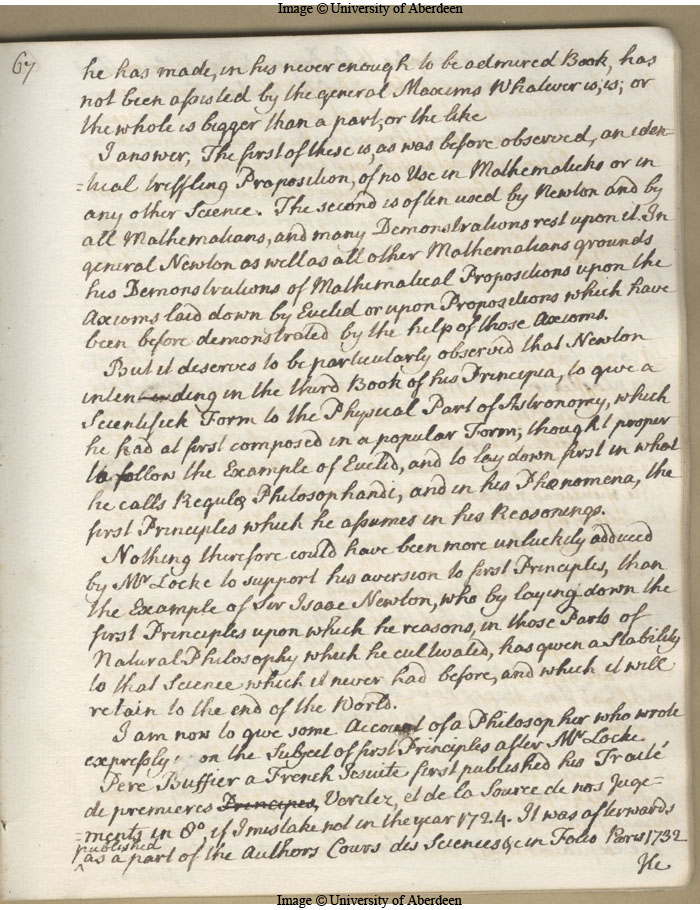 Image © University of Aberdeen
67
he has made, in his never enough to be admired Book, has
not been assisted by the general Maxims Whatever is, is; or
the whole is bigger than a part, or the like
I answer, The first of these is, as was before observed, an iden=
=tical triffling Proposition, of no Use in Mathematicks or in
any other Science. The second is often used by Newton and by
all Mathematians, and many Demonstrations rest upon it. In
general Newton as well as all other Mathematians grounds
his Demonstrations of Mathematical Propositions upon the
Axioms laid down by Euclid or upon Propositions which have
been before demonstrated by the help of those Axioms.
But it deserves to be particularly observed that Newton
intending in the third Book of his Principia, to give a
Scientifick Form to the Physical Part of Astronomy, which
he had at first composed in a popular Form; thought proper
to follow the Example of Euclid, and to lay down first in what
he calls Regulæ Philosophandi, and in his Phænomena, the
first Principles which he assumes in his Reasonings.
Nothing therefore could have been more unluckily adduced
by Mr Locke to support his aversion to first Principles, than
the Example of Sir Isaac Newton, who by laying down the
first Principles upon which he reasons, in those Parts of
Natural Philosophy which he cultivated, has given a Stability
to that Science which it never had before, and which it will
retain to the end of the World.
I am now to give some Account of a Philosopher who wrote
expressly on the Subject of first Principles after Mr Locke
Pere Buffier a French Jesuite first published his Traité
de premieres Principes, Veritez, et de la Source de nos Juge=
=ments in 8º, if I mistake not in the year 1724. It was afterwards
published
as a part of the Authors Cours des Sciences &c in Folio Paris 1732
He
Image © University of Aberdeen